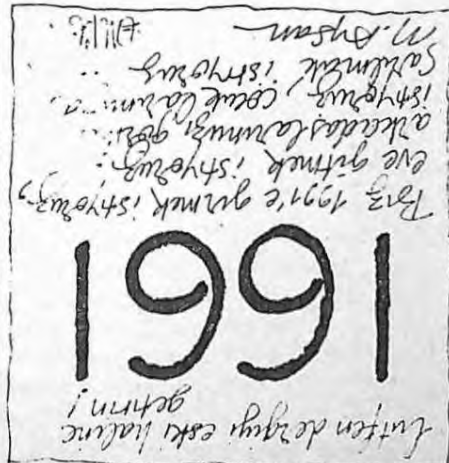 Lütfen dergiyi eski haline
getirin!
1991
Biz 1991'e girmek istiyoruz,
eve gitmek istiyoruz.
arkadaşlarımızı
istiyoruz,
sarılmak istiyoruz
M. Aysan